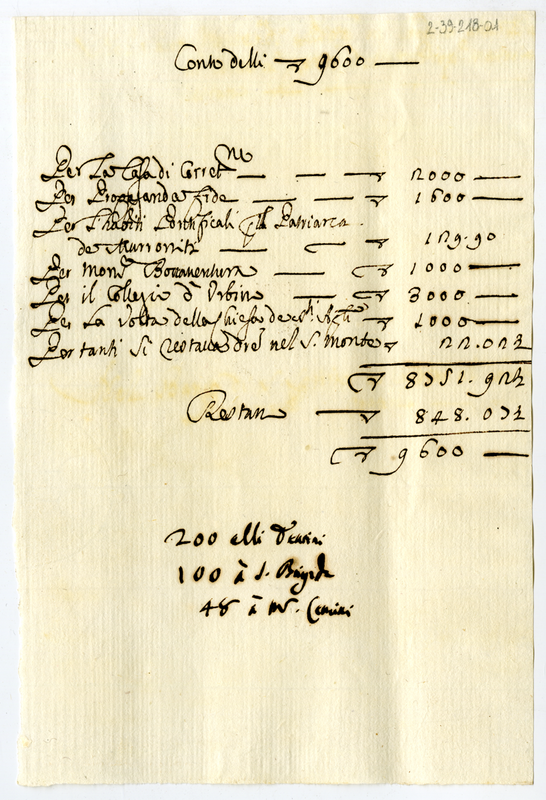 2-39-218-01
Conto delli ▽ 9600
Per La Casa di Corret.ne ▽ 2000
Per Propaganda fide ▽ 1600
Per l'habiti Pontificali p il Patriarca
de Marroniti ▽ 129.90
Per Mons.r Bonaventura ▽ 1000
Per il Collegio d Urbino ▽ 3000
Per La volta della Chiesa de ▽ 1000
Per tanti si restava nel S. Monte ▽ 22.02½
▽ 8751.92½
Restano ▽ 848.07½
▽ 9600
200 alli
100 à S. Brigida
48 à